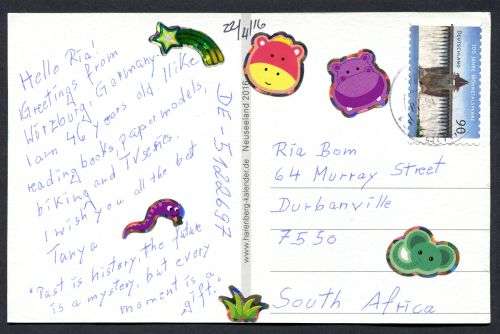 22/4/16
Hello Ria!
Greetings from
Würzburg, Germany.
I am 46 years old. I like
reading books, papermodels,
biking and TV series.
I wish you all the best
Tanya
"Past is history, the future
is a mystery, but every
moment is a
gift."
DE-5122697
www.harenberg-kalender.de Neuseeland 2016
DEUTSCHLAND
90
Ria Bom
64 Murray Street
Durbanville
7550
South Africa